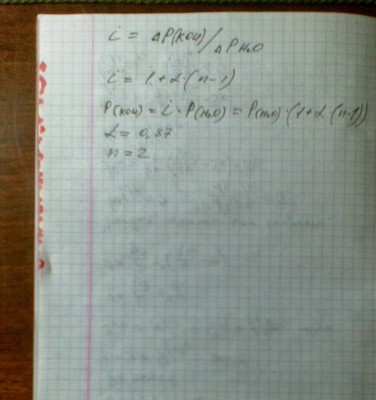 i = ΔP(KOH)/ΔP H₂O
i = 1 + α · (n-1)
P(KOH) = i · P(H₂O) = P(H₂O) · (1 + α · (n-1))
α = 0,87
n = 2